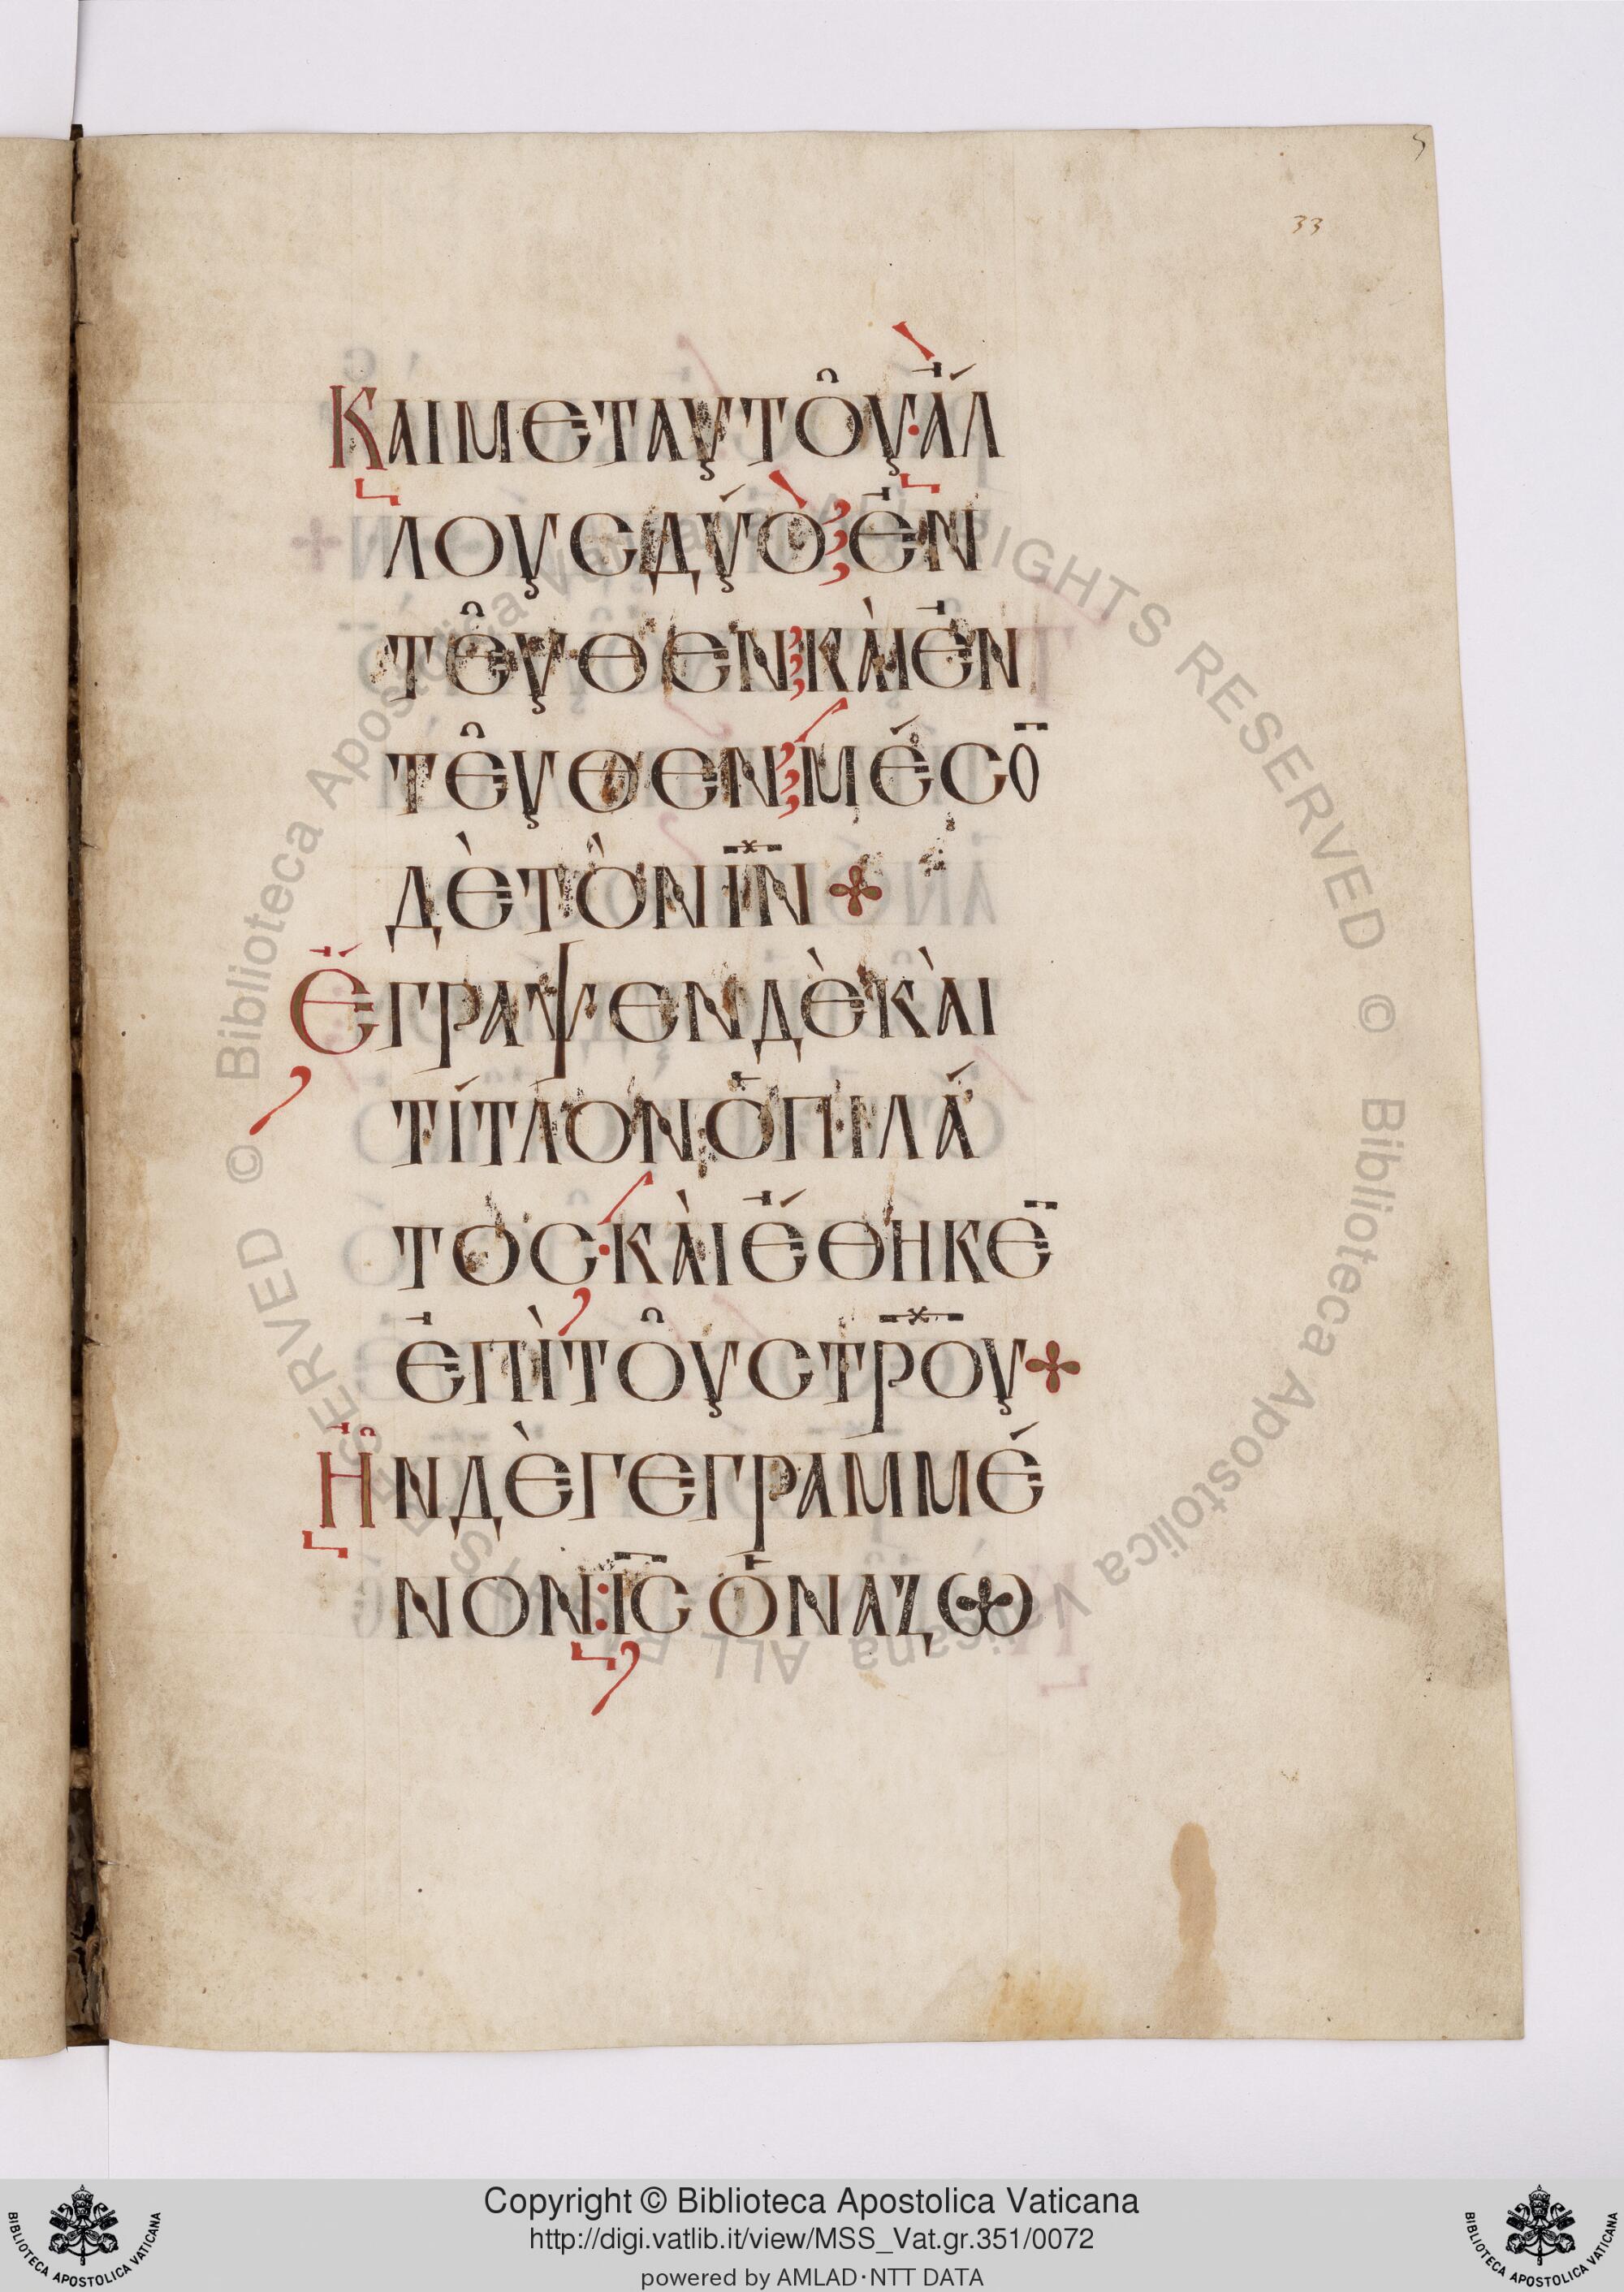 33
ΚΑΙΜΕΤΑΥΤΟῦΥ·ἄΛ
ΛΟΥϹΔΎῸ ἐΝ
ΤΕ͂ΥΘΕΝ ΚΑῚ ἐΝ
ΤΕ͂ΥΘΕΝ ΜΈϹΟ̅
ΔῈΤῸΝ Ι̅Ν̅ +
ἜΓΡΑΨΕΝΔῈΚΑῚ
ΤΊΤΛΟΝ·ὉΠΙΛΆ
ΤΟϹ·ΚΑῚἜΘΗΚΕ̅
ἘΠῚΤΟῦϹΤΡ̅ΟΥ +
ἮΝΔῈΓΕΓΡΑΜΜΈ
ΝΟΝ: Ι̅Ϲ̅ ὉΝΑΖΩ
© Biblioteca Apostolica Vaticana ALL RIGHTS RESERVED © Biblioteca Apostolica Vaticana ALL RIGHTS RESERVED
BIBLIOTECA APOSTOLICA VATICANA
Copyright © Biblioteca Apostolica Vaticana
http://digi.vatlib.it/view/MSS_Vat.gr.351/0072
powered by AMLAD·NTT DATA
BIBLIOTECA APOSTOLICA VATICANA